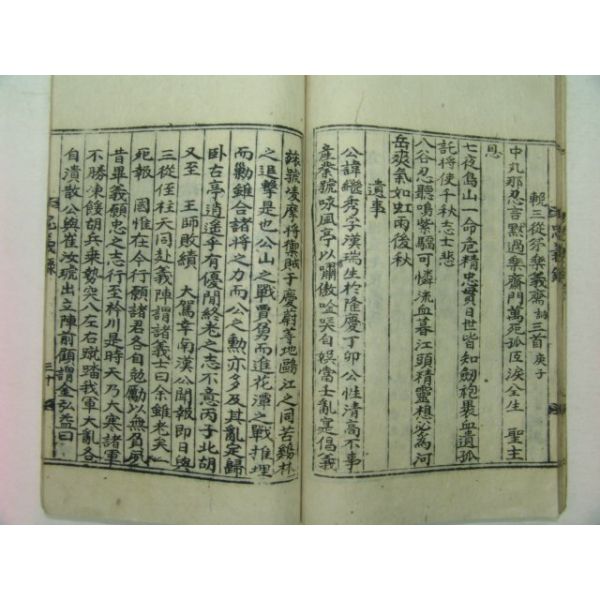 輓三從弟樂義齋詩三首 庚子
中丸那忍言默過樂齋門萬死孤臣淚全生 聖主
恩
七夜烏山一命危精忠貫日世皆知劒袍裹血遺孤
託將使千秋志士悲
八谷忍聽鳴紫騮可憐流血暮江頭精靈想必爲河
岳爽氣如虹雨後秋
遺事
公諱繼秀字漢瑞生於隆慶丁卯公性清高不事
産業號咏風亭以嘯傲唫哭自娱當壬亂是倡義
旅號崚摩將禦賊于慶蔚等地鷗江之同苦鷄林
之追擊是也公山之戰賈勇而進花潭之戰推埋
而勦雖合諸將之力而公之勲亦多及其亂定歸
卧古亭逍遥乎有優閒終老之志不意丙子北胡
又至 王師敗績 大駕幸南漢公聞報即日與
三從侄柱天同赴義陣謂諸義士曰余雖老矣一
死報 國惟在今行願諸君各自勉勵以無負夙
昔畢義願忠之志行至衿川是時天乃大寒諸軍
不勝凍餒胡兵乗勢突入左右蹴踏我軍大亂各
自潰散公與崔汝琥出立陣前顧謂金弘益曰
三十